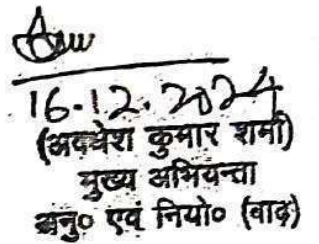 16.12.2024
(अवधेश कुमार शर्मा)
मुख्य अभियन्ता
अनु० एवं नियो० (बाढ़)